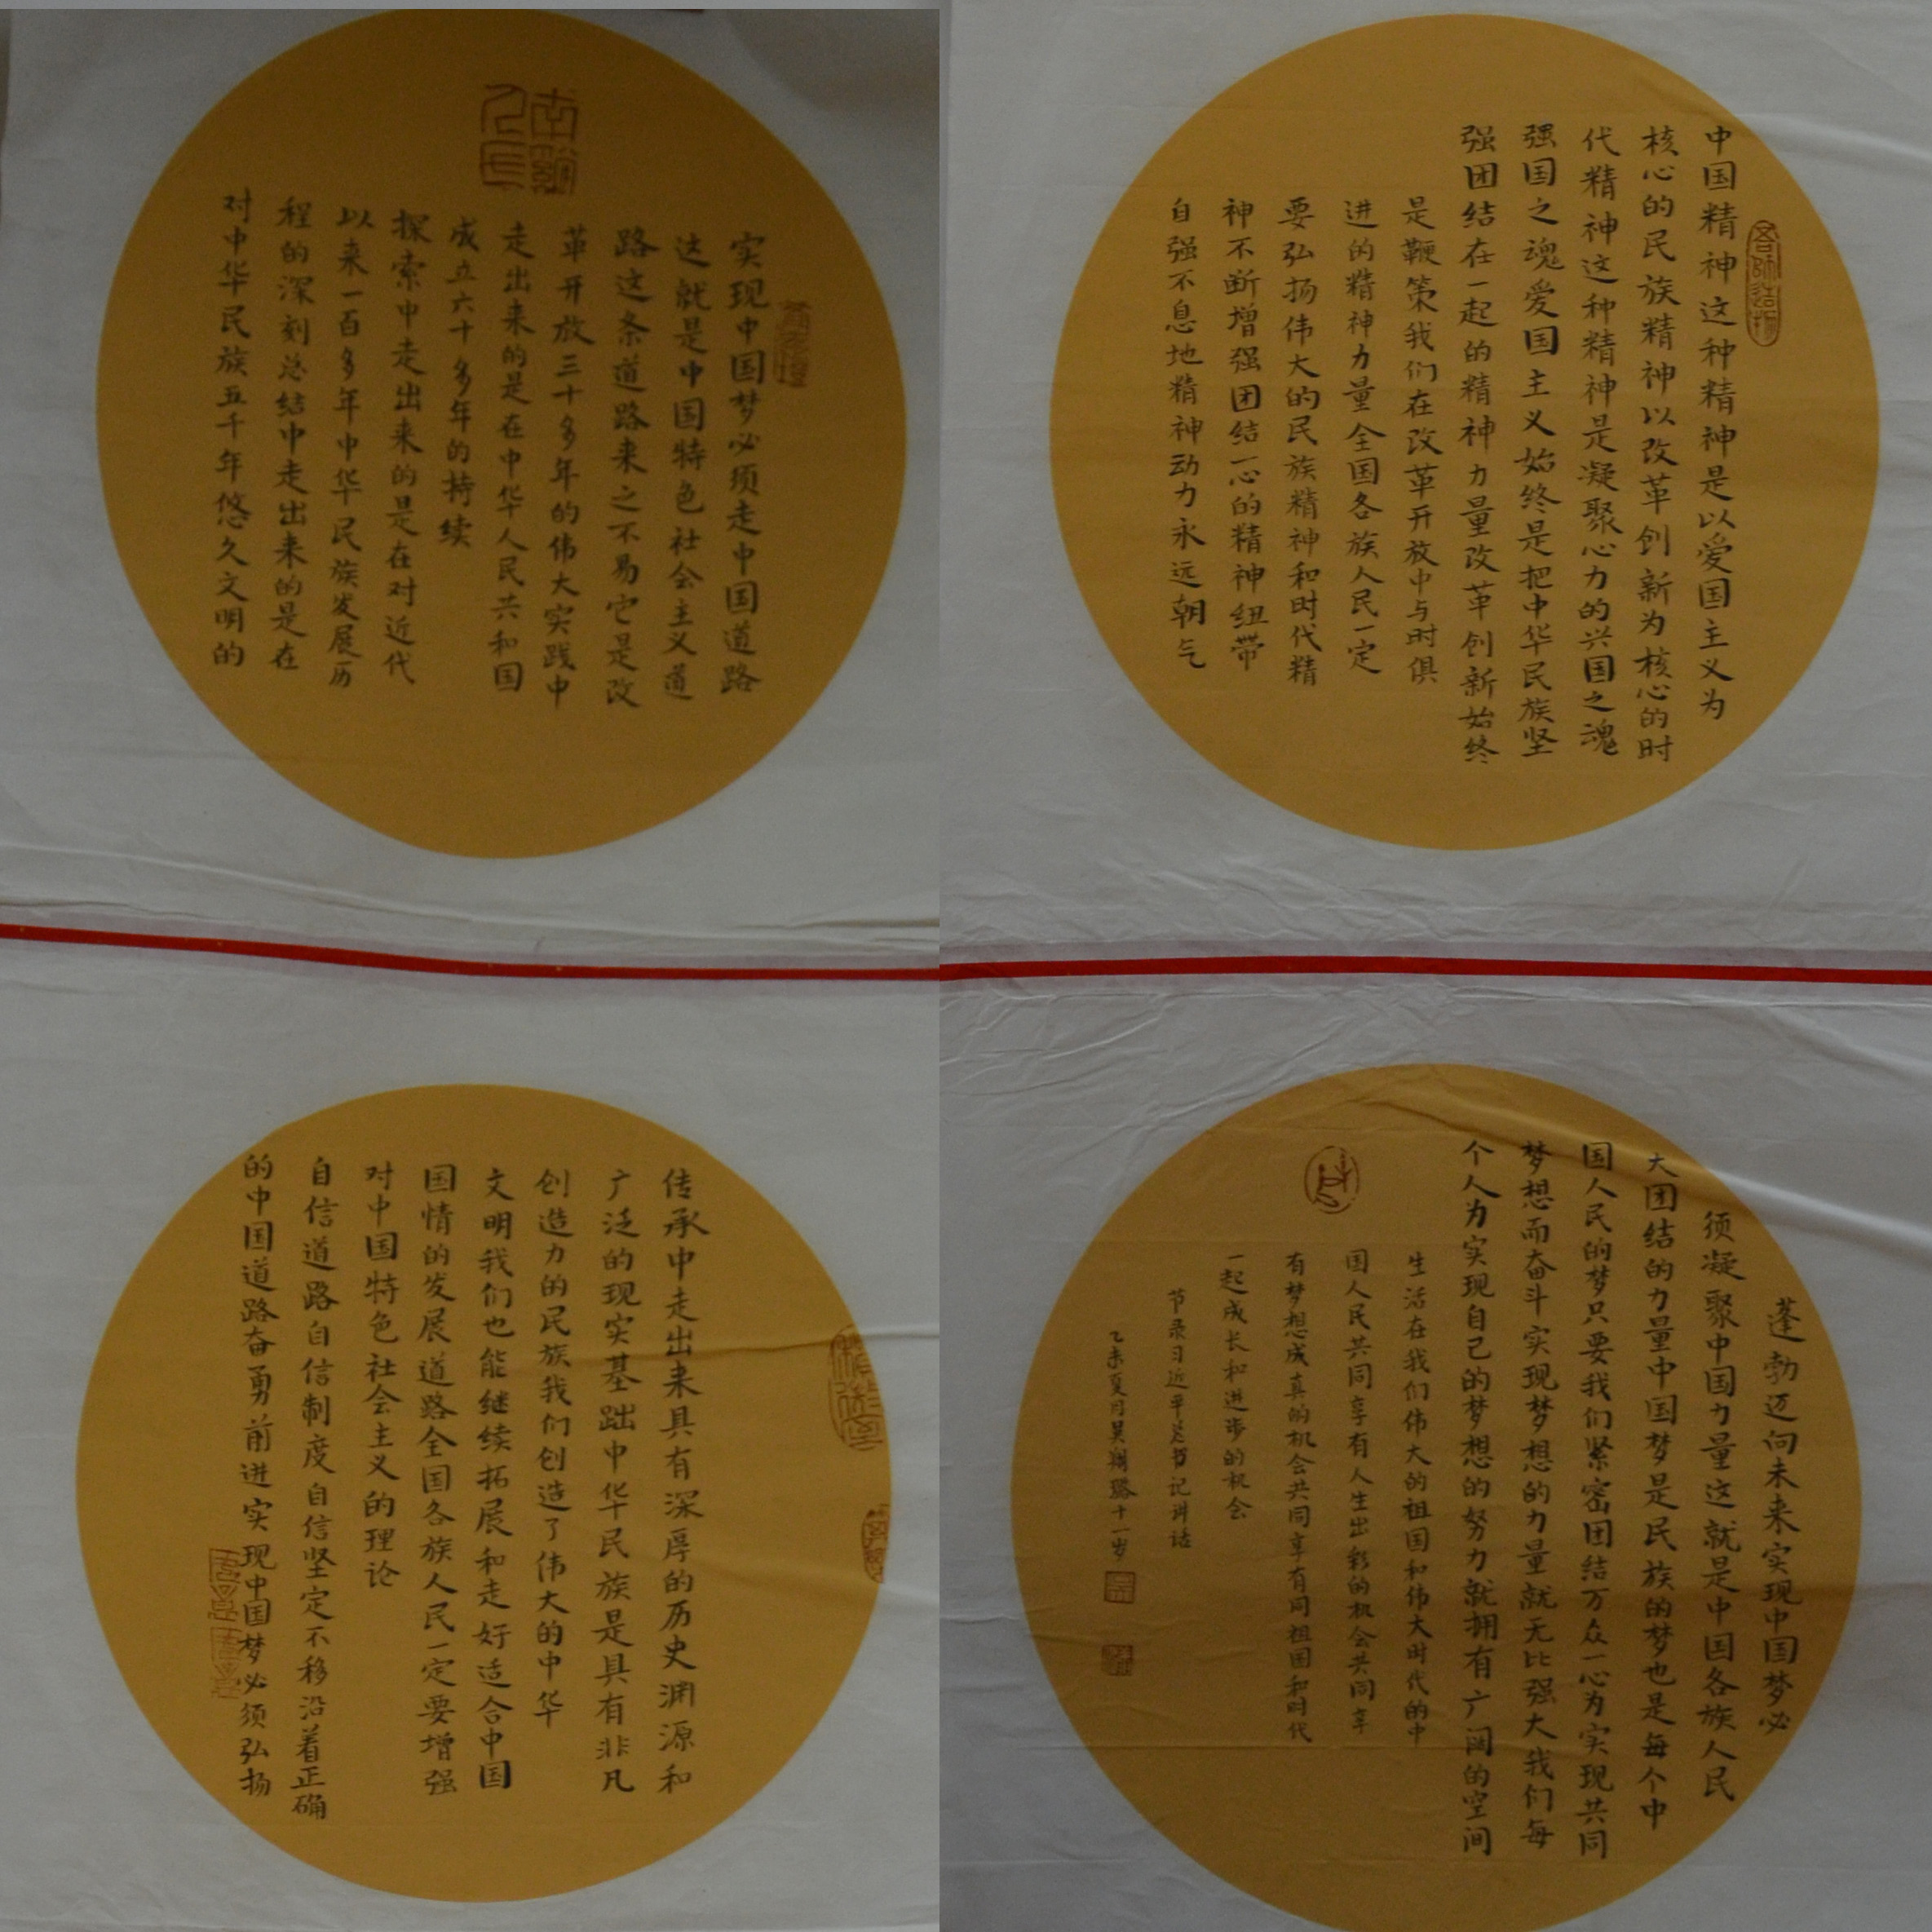 实现中国梦必须走中国道路
这就是中国特色社会主义道
路这条道路来之不易它是改
革开放三十多年的伟大实践中
走出来的是在中华人民共和国
成立六十多年的持续
探索中走出来的是在对近代
以来一百多年中华民族发展历
程的深刻总结中走出来的是在
对中华民族五千年悠久文明的
传承中走出来具有深厚的历史渊源和
广泛的现实基础中华民族是具有非凡
创造力的民族我们创造了伟大的中华
文明我们也能继续拓展和走好适合中国
国情的发展道路全国各族人民一定要增强
对中国特色社会主义的理论
自信道路自信制度自信坚定不移沿着正确
的中国道路奋勇前进实现中国梦必须弘扬
吾师造物
中国精神这种精神是以爱国主义为
核心的民族精神以改革创新为核心的时
代精神这种精神是凝聚心力的兴国之魂
强国之魂爱国主义始终是把中华民族坚
强团结在一起的精神力量改革创新始终
是鞭策我们在改革开放中与时俱
进的精神力量全国各族人民一定
要弘扬伟大的民族精神和时代精
神不断增强团结一心的精神纽带
自强不息地精神动力永远朝气
蓬勃迈向未来实现中国梦必
须凝聚中国力量这就是中国各族人民
大团结的力量中国梦是民族的梦也是每个中
国人民的梦只要我们紧密团结万众一心为实现共同
梦想而奋斗实现梦想的力量就无比强大我们每
个人为实现自己的梦想的努力就拥有广阔的空间
生活在我们伟大的祖国和伟大时代的中
国人民共同享有人生出彩的机会共同享
有梦想成真的机会共同享有同祖国和时代
一起成长和进步的机会
节录习近平总书记讲话
乙未夏月吴翊璐十一岁